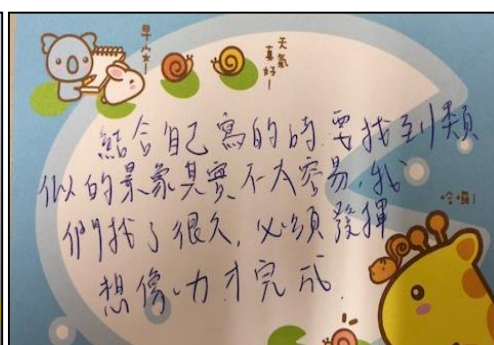 早安！
天氣
真好！
結合自己寫的時，要找到類
似的景象其實不太容易，我
們找了很久，必須發揮
想像力才完成．
哈囉！